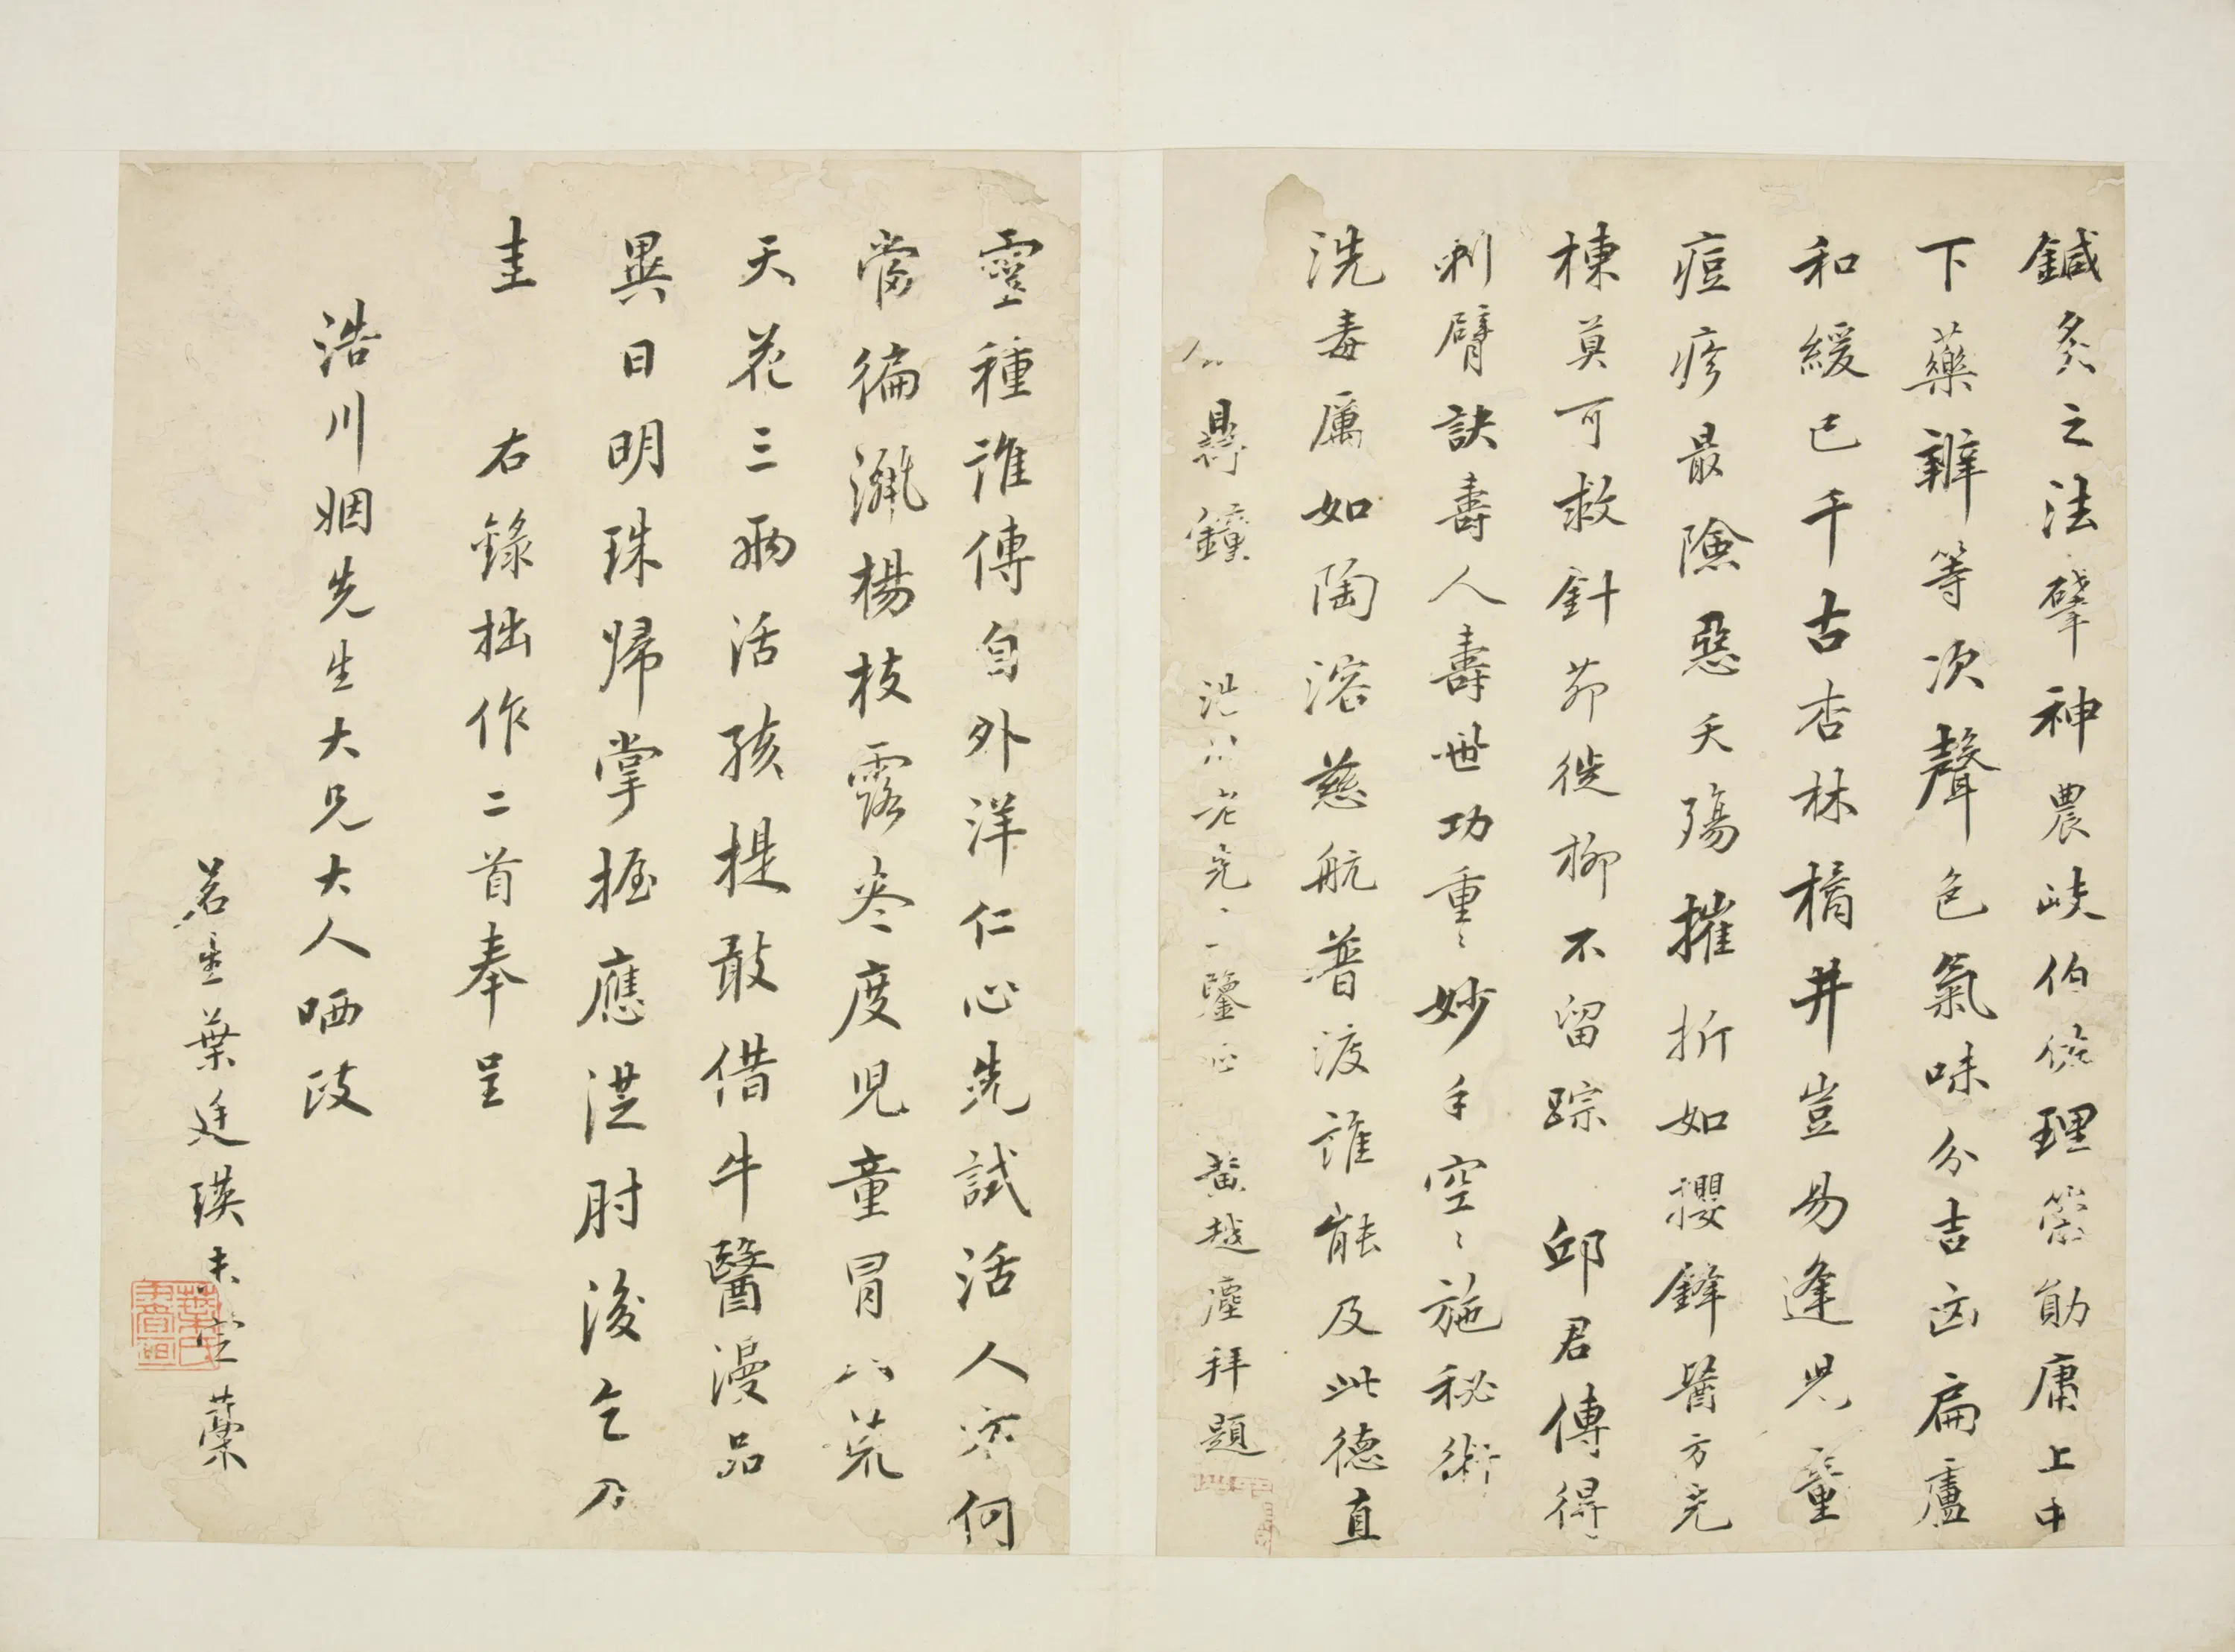 鍼灸之法肇神農岐伯條理策勛庸上中
下藥辨等次聲色氣味分吉凶扁盧
和緩已千古杏林橘井豈易逢兒童
痘疹最險惡夭殤摧折如攖鋒醫方充
棟莫可救針茆徙柳不留踪 邱君傳得
刺臂訣壽人壽世功重〻妙手空〻施秘術
洗毒厲如陶溶慈航普渡誰能及此德直
鐘 老先 鑒 黃越塵拜題
靈種誰傳自外洋仁心先試活人方何
當徧灑楊枝露卷度兒童冒八荒
天花三兩活孩提敢借牛醫漫品
異日明珠歸掌握應從肘後乞刀
圭 右錄拙作二首奉呈
浩川姻先生大兄大人哂政
茗生葉廷瑛未定藁
葉氏